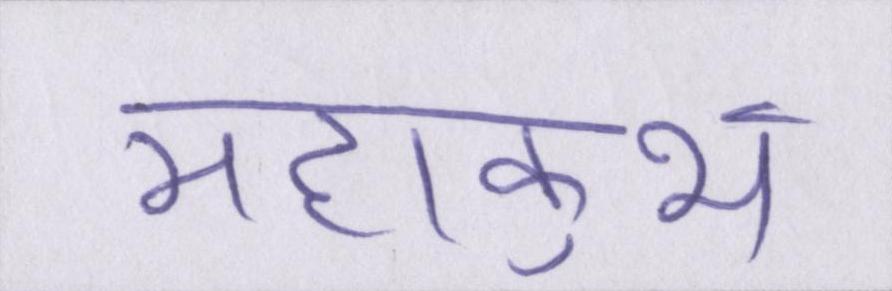 महाकुभं